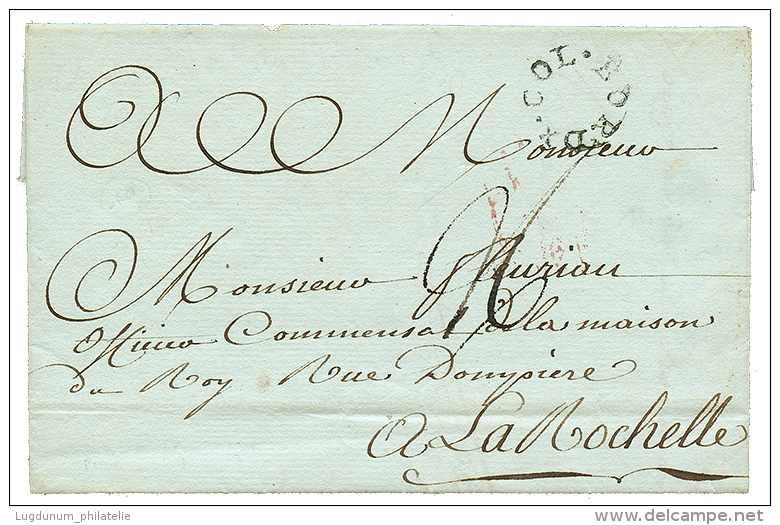 COL. PAR BORD.
A Monsieur
Monsieur Fleuriau
Officier Commensal de la maison
du Roy Rue Dompierre
A La Rochelle
Lugdunum_philatelie
delcampe.net